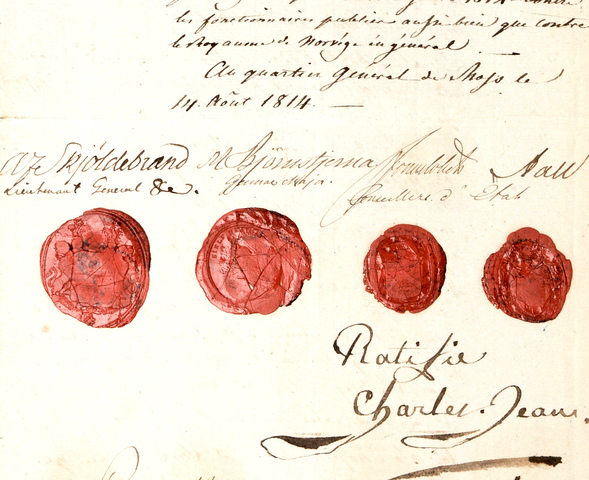 les fonctionnaires publics aussi bien que contre
le Royaume de Norvège en général.
Au quartier général de Moss le
14. Août 1814. —
AF Skjöldebrand M Björnstjerna Aall
Lieutenant General &c. General Major Conseillers d'Etat
Ratifié
Charles Jean.